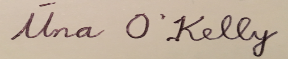 Úna O'Kelly